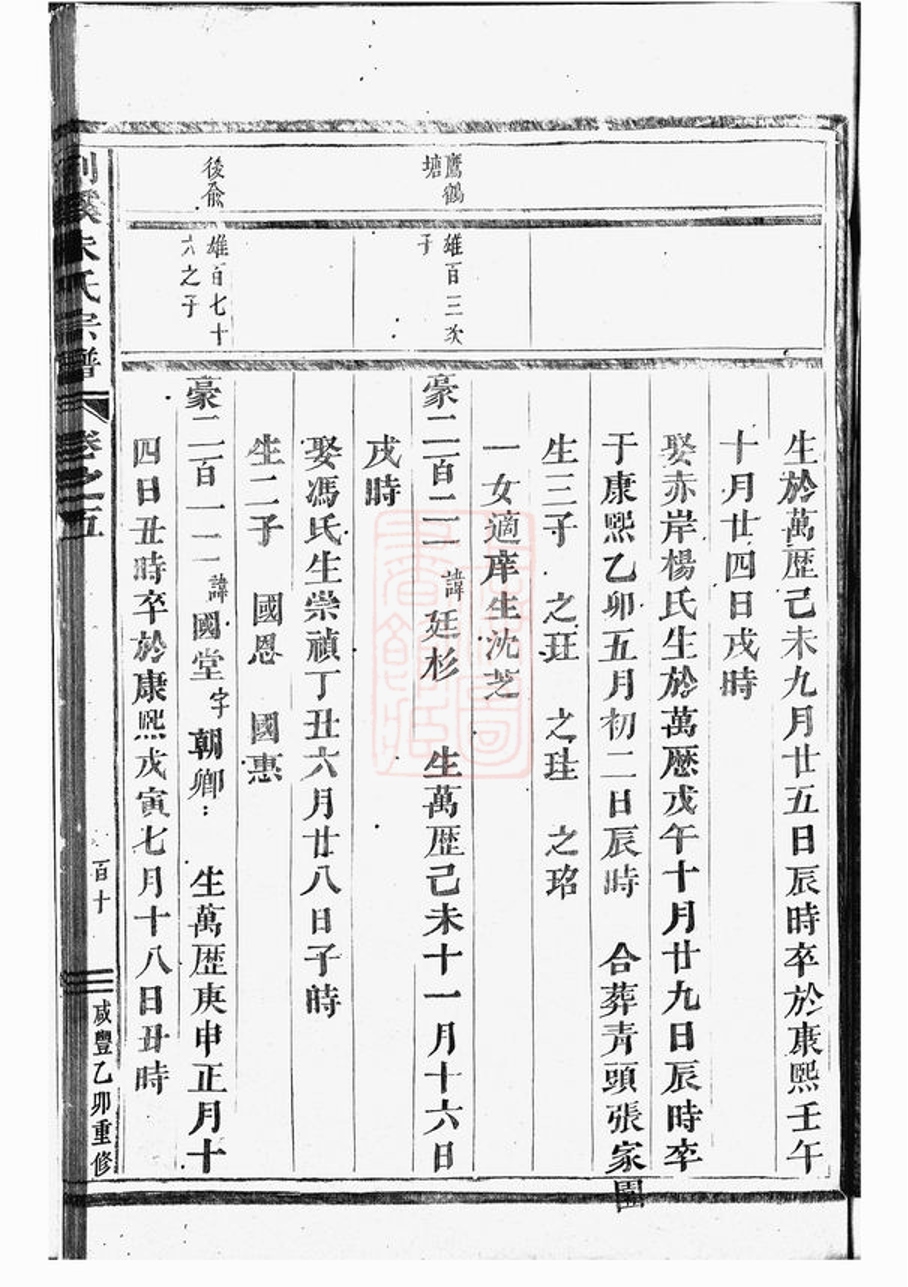 生於萬歴己未九月廿五日辰時卒於康熙壬午
十月廿四日戌時
娶赤岸楊氏生於萬歷戊午十月廿九日辰時卒
于康熙乙卯五月初二日辰時 合葬青頭張家園
生三子 之玨 之珪 之珞
一女適庠生沈芝
鷹鶴
塘
雄百三次
子
豪二百二二 諱廷杉 生萬歴己未十一月十六日
戌時
娶馮氏生崇禎丁丑六月廿八日子時
生二子 國恩 國惠
後俞
雄百七十
六之子
豪二百一二 諱國堂 字朝卿 生萬歴庚申正月十
四日丑時卒於康熙戊寅七月十八日丑時
朱氏宗譜 卷之五 百十 咸豐乙卯重修